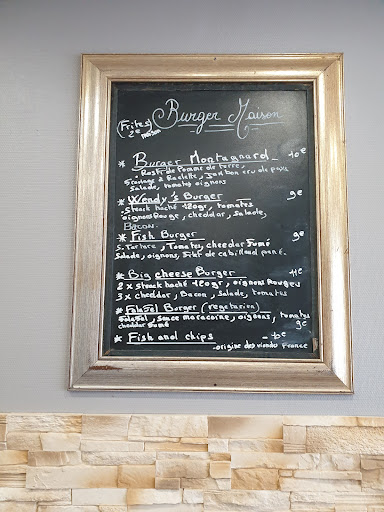 Burger Maison
(Frites 2€ maison)
* Burger Montagnard 10€
- Rosti de Pomme de terre, Jambon cru de pays
Fromage à Raclette,
Salade, tomates oignons
* Wendy's Burger 9€
- Steack haché 120gr, tomates
oignons Rouge, cheddar, Salade,
Bacon.
* Fish Burger 9€
S. Tartare, Tomates, cheddar fumé
Salade, oignons, filet de cabillaud pané.
* Big cheese Burger 11€
2 x Steack haché 120gr, oignons Rouges
3 x cheddar, Bacon, Salade, tomates
* Falafel Burger (vegetarien)
falafel, Sauce marocaine, oignons, tomates
cheddar fumé 9€
* Fish and chips
- origine des viandes France